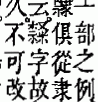 部之例
俱從隶
云隸字故
久不可改